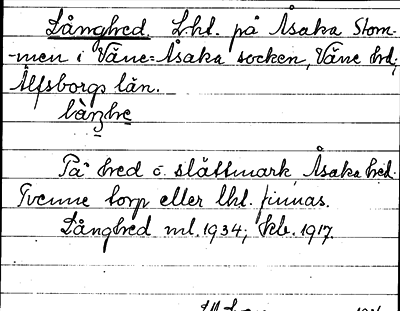 Långhed. Lht. på Åsaka Stom-
men i Väne-Åsaka socken, Väne hd;
Älfsborgs län.
På hed o. slåttmark, Åsaka hed.
Tvenne torp eller lht. finnas.
Långhed ml. 1934; kb. 1917.